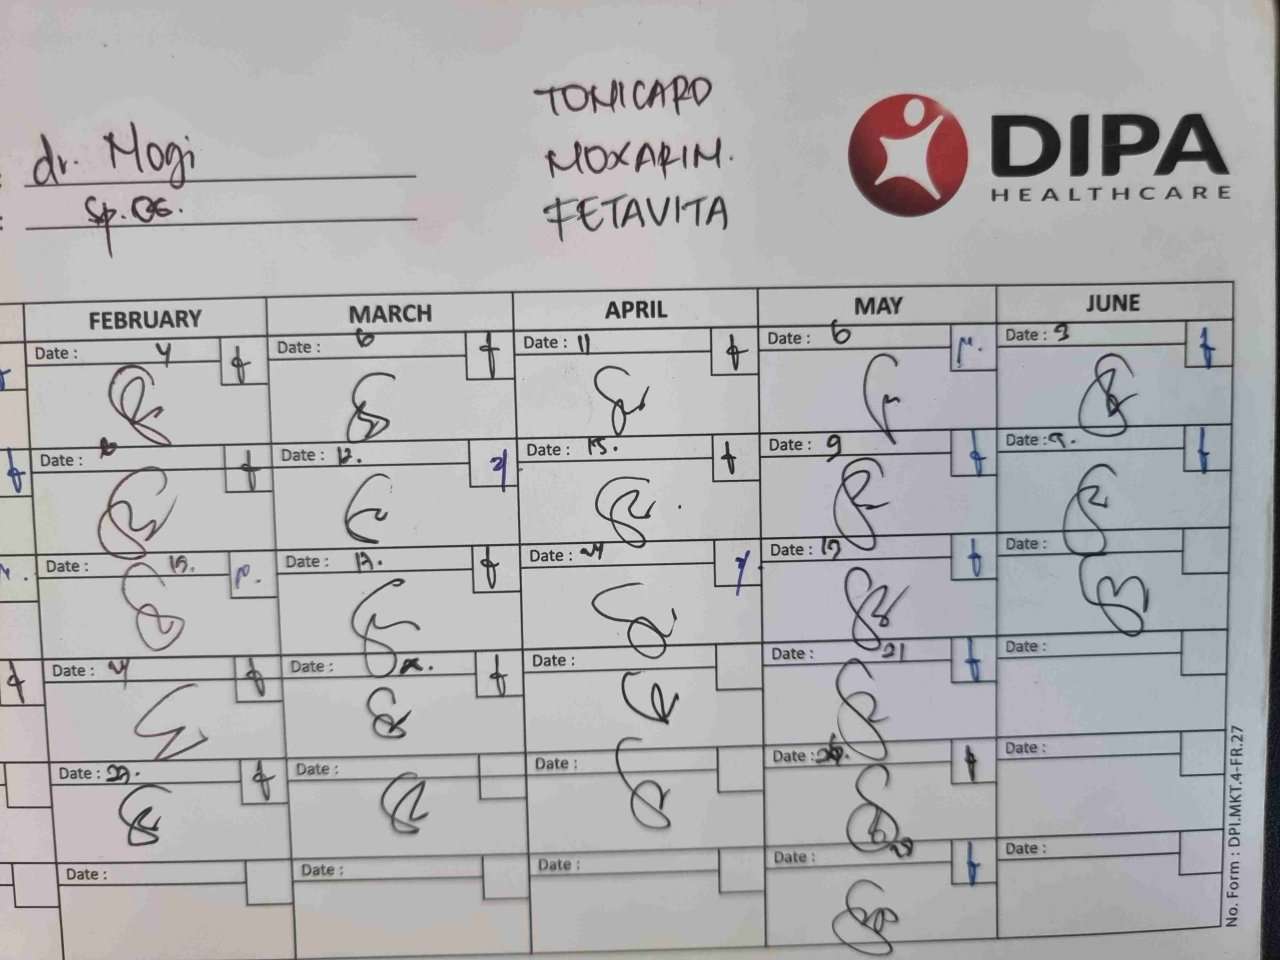 TONICARD
DIPA
HEALTHCARE
dr. Mogi
MOXARIM.
Sp.OG.
FETAVITA
FEBRUARY MARCH APRIL MAY JUNE
Date : 4 Date : 6 Date : 11 Date : 6 Date : 3
Date : 6 Date : 12. Date : 15. Date : 9 Date : 9.
Date : 19. Date : 17. Date : 24 Date : 19 Date :
Date : Date : Date : Date : 21 Date :
Date : 27. Date : Date : Date : Date :
Date : Date : Date : Date : 28 Date :
No. Form : DPI.MKT.4-FR.27